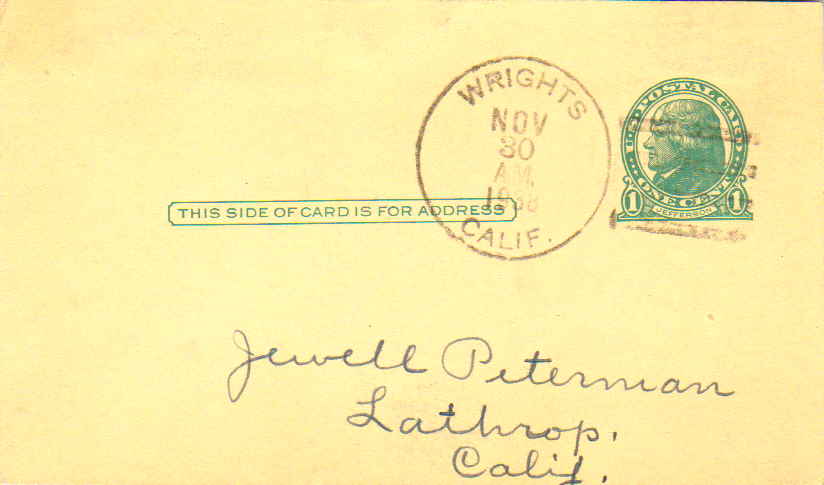 WRIGHTS
NOV
30
A.M.
1938
CALIF.
U.S. POSTAL CARD
ONE CENT
1 JEFFERSON 1
THIS SIDE OF CARD IS FOR ADDRESS
Jewell Peterman
Lathrop.
Calif.